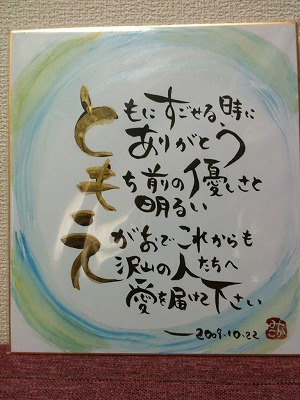 ともにすごせる、時に
ありがとう
もち前の優しさと
明るい
えがおでこれからも
沢山の人たちへ
愛を届けて下さい
2009.10.22